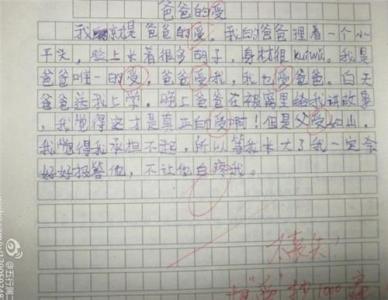 爸爸的爱
我 爸爸的爱。我的爸爸理着一个小
平头，脸上长着很多的子，身材很kuíwú。我是
爸爸唯一的爱，爸爸爱我，我也爱爸爸。白天
爸爸送我上学。晚上爸爸在被窝里给我讲故事
，我觉得这才是真正的爱啊！但是父爱如山，
我觉得我承担不起，所以等我长大了我一定会
好好报答他，不让他白疼我。
100